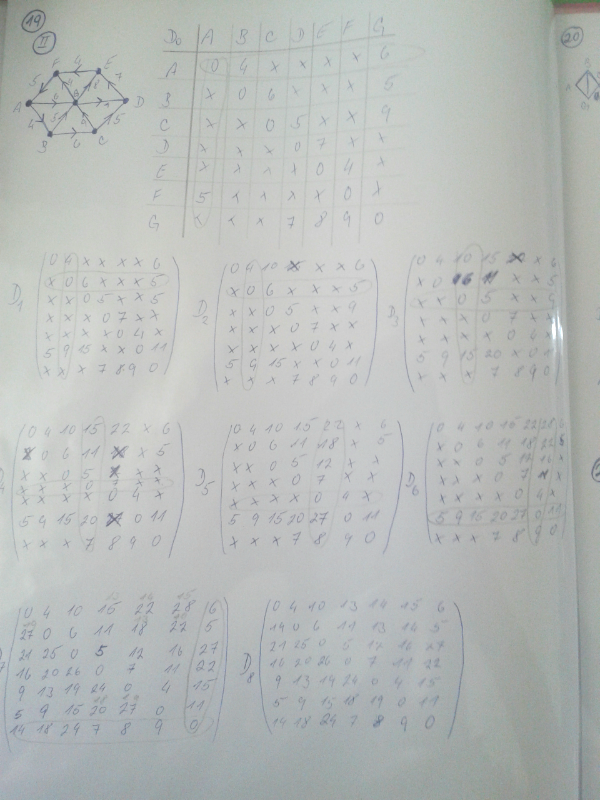 19
II
20
F 4 E
5 7
A D
4 5
B 6 C
D0 A B C D E F G
A 0 4 x x x x 6
B x 0 6 x x x 5
C x x 0 5 x x 9
D x x x 0 7 x x
E x x x x 0 4 x
F 5 x x x x 0 x
G x x x 7 8 9 0
D1
0 4 x x x x 6
x 0 6 x x x 5
x x 0 5 x x 5
x x x 0 7 x x
x x x x 0 4 x
5 9 15 x x 0 11
x x x 7 8 9 0
D2
0 4 10 x x x 6
x 0 6 x x x 5
x x 0 5 x x 9
x x x 0 7 x x
x x x x 0 4 x
5 9 15 x x 0 11
x x x 7 8 9 0
D3
0 4 10 15 x x 6
x 0 6 11 x x 5
x x 0 5 x x
x x x 0 7 x x
x x x x 0 4 x
5 9 15 20 x 0 11
x x x 7 8 9 0
0 4 10 15 22 x 6
x 0 6 11 x x 5
x x 0 5 x x x
x x x 0 7 x x
x x x x 0 4 x
5 4 15 20 0 11
x x x 7 8 9 0
D5
0 4 10 15 22 x 6
x 0 6 11 18 x 5
x x 0 5 12 x x
x x x 0 7 x x
x x x x 0 4 x
5 9 15 20 27 0 11
x x x 7 8 9 0
D6
0 4 10 15 22 28 6
x 0 6 11 18 22 5
x x 0 5 12 16 x
x x x 0 7 x
x x x x 0 4 x
5 9 15 20 27 0 11
x x x 7 8 9 0
0 4 10 15 22 28 6
27 0 6 11 18 22 5
21 25 0 5 12 16 27
16 20 26 0 7 11 22
9 13 19 24 0 4 15
5 9 15 20 27 0 11
14 18 24 7 8 9 0
D8
0 4 10 13 14 15 6
14 0 6 11 13 14 5
21 25 0 5 12 16 27
16 20 26 0 7 11 22
9 13 14 24 0 4 15
5 9 15 18 19 0 11
14 18 24 7 8 9 0